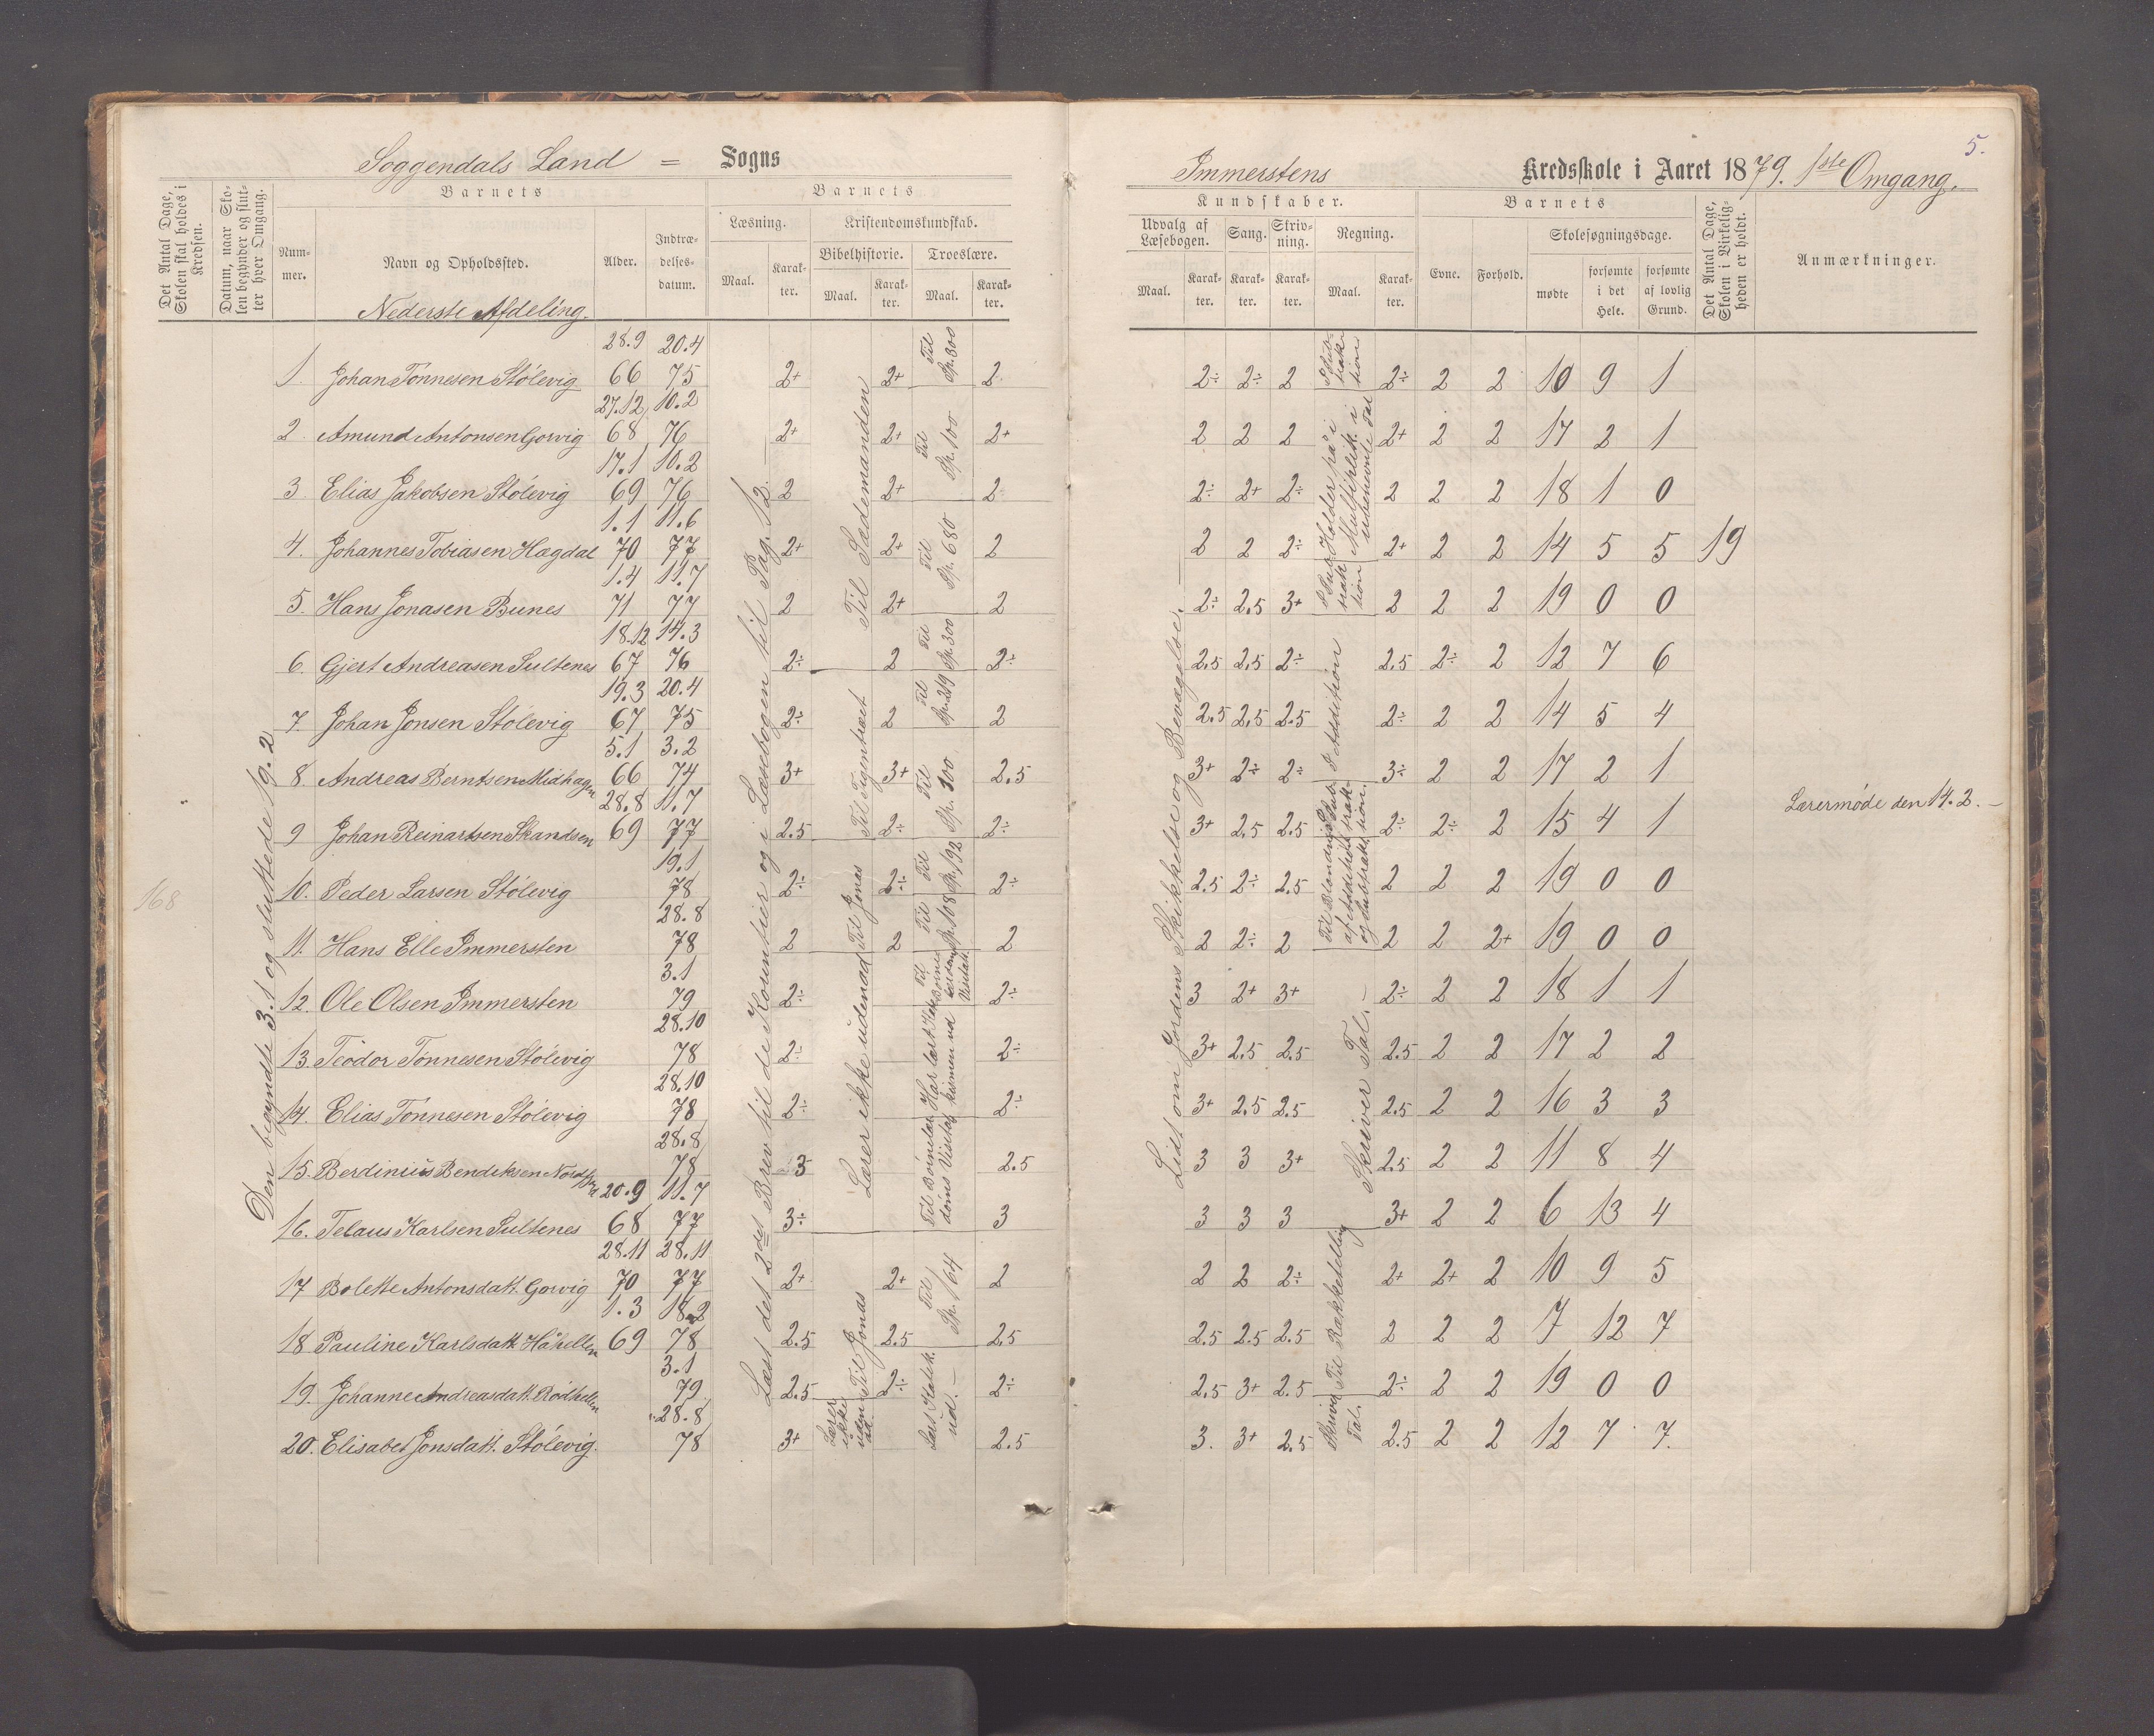 5.
Soggendals Land = Sogns
Immerstens Kredsskole i Aaret 1879. 1ste Omgang.
Det Antal Dage, Skolen skal holdes i Kredsen.
Datum, naar Skolen begynder og slutter hver Omgang.
Barnets
Nummer.
Navn og Opholdssted.
Alder.
Indtrædelsesdatum.
Barnets
Læsning.
Kristendomskundskab.
Bibelhistorie.
Troeslære.
Maal. Karakter. Maal. Karakter. Maal. Karakter.
Kundskaber.
Udvalg af Læsebogen. Sang. Skrivning. Regning.
Maal. Karakter. Karakter. Karakter. Maal. Karakter.
Barnets
Evne. Forhold.
Skolesøgningsdage.
mødte forsømte i det Hele. forsømte af lovlig Grund.
Det Antal Dage, Skolen i Virkeligheden er holdt.
Anmærkninger.
Nederste Afdeling.
28.9 20.4
1. Johan Tønnesen Stølevig 66 75 2+ 2+ Til Sp. 300 2 2÷ 2÷ 2 2÷ 2 2 10 9 1
27.12 10.2
2. Amund Antonsen Gorvig 68 76 2+ 2+ Til Sp. 100 2+ 2 2 2 2+ 2 2 17 2 1
17.1 10.2
3 Elias Jakobsen Stølevig 69 76 2 2+ 2 2÷ 2+ 2÷ 2 2 2 18 1 0
1.1 11.6
4. Johannes Tobiasen Hægdal 70 77 2+ 2+ Til Sp. 680 2 2 2 2÷ 2+ 2 2 14 5 5 19
1.4 11.7
5. Hans Jonasen Bunes 71 77 2 2+ 2 2÷ 2.5 3+ 2 2 2 19 0 0
18.12 14.3
6. Gjert Andreasen Sultenes 67 76 2÷ 2 Til Sp. 300 2÷ 2.5 2.5 2÷ 2.5 2÷ 2 12 7 6
19.3 20.4
7. Johan Jonsen Stølevig 67 75 2÷ 2 Til Sp. 219 2 2.5 2.5 2.5 2÷ 2 2 14 5 4
5.1 3.2
8 Andreas Berntsen Midhagen 66 74 3+ 3+ Til Sp. 300 2.5 3+ 2÷ 2÷ 3÷ 2 2 17 2 1
28.8 11.7
9 Johan Reinartsen Skandsen 69 77 2.5 2÷ 2÷ 3+ 2.5 2.5 2÷ 2÷ 2 15 4 1
Lærermøde den 14.2. –
19.1
10. Peder Larsen Stølevig 78 2÷ 2÷ Til Sp. 192 2÷ 2.5 2÷ 2.5 2 2 2 19 0 0
28.8
11. Hans Elle Immersten 78 2 2 Til Sp. 108 2 2 2÷ 2 2 2 2+ 19 0 0
3.1
12. Ole Olsen Immersten 79 2÷ 2÷ 3 2+ 3+ 2÷ 2 2 18 1 1
28.10
13. Teodor Tønnesen Stølevig 78 2÷ 2÷ 3+ 2.5 2.5 2.5 2 2 17 2 2
28.10
14. Elias Tønnesen Stølevig 78 2÷ 2÷ 3+ 2.5 2.5 2.5 2 2 16 3 3
28.8
15. Berdinius Bendiksen 78 3 2.5 3 3 3+ 2.5 2 2 11 8 4
20.9 11.7
16. Telaus Karlsen Sultenes 68 77 3÷ 3 3 3 3 3+ 2 2 6 13 4
28.11 28.11
17 Bolette Antonsdatt. Gorvig 70 77 2+ 2+ Til Sp. 164 2 2 2 2÷ 2+ 2+ 2 10 9 5
1.3 18.2
18 Pauline Karlsdatt. Håhellen 69 78 2.5 2.5 2.5 2.5 2.5 2.5 2 2 2 7 12 7
3.1
19. Johanne Andreasdatt. Rødhellen 79 2.5 2÷ 2÷ 2.5 3+ 2.5 2÷ 2 2 19 0 0
28.8
20. Elisabet Jonsdatt. Stølevig. 78 3+ 2.5 3. 3+ 2.5 2.5 2 2 12 7 7.
168
Den begyndte 3.1 og sluttede 19.2
Læst det 2det Brev til de Korintier og i Læsebogen til Pag. 12.
Til Sædemanden
Til Figentræet
Til Jonas
Lærer ikke udenad
Til Jonas
Lærer ikke udenad.
Læst Katek. ud. –
Lidt om Jordens Skikkelse og Bevægelse. –
I Subtraktion
Holder på i Multiplik. i ubenævnte Tal
I Subtraktion
I Addition
Skriver Tal. –
Til Rækketelling
Skriver Tal.